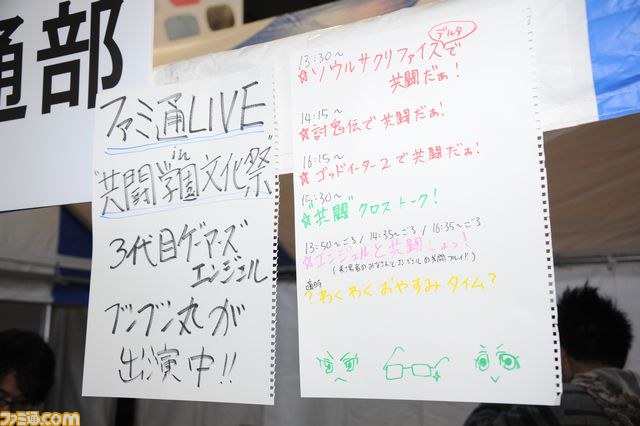 通部
ファミ通LIVE
in
"共闘学園文化祭"
3代目ゲーマーズ
エンジェル
ブンブン丸が
出演中!!
13:30~
デルタ
☆ソウルサクリファイスで
共闘だぁ!
14:15~
☆討鬼伝で共闘だぁ!
16:15~
☆ゴッドイーター2で共闘だぁ!
15:30~
☆"共闘"クロストーク!
13:50~ごろ/14:35~ごろ/16:35~ごろ
☆エンジェルと共闘しよっ!
(来場者のみなさんとエンジェルの共闘プレイ!!)
適時
?わくわくおやすみタイム?
ファミ通.com